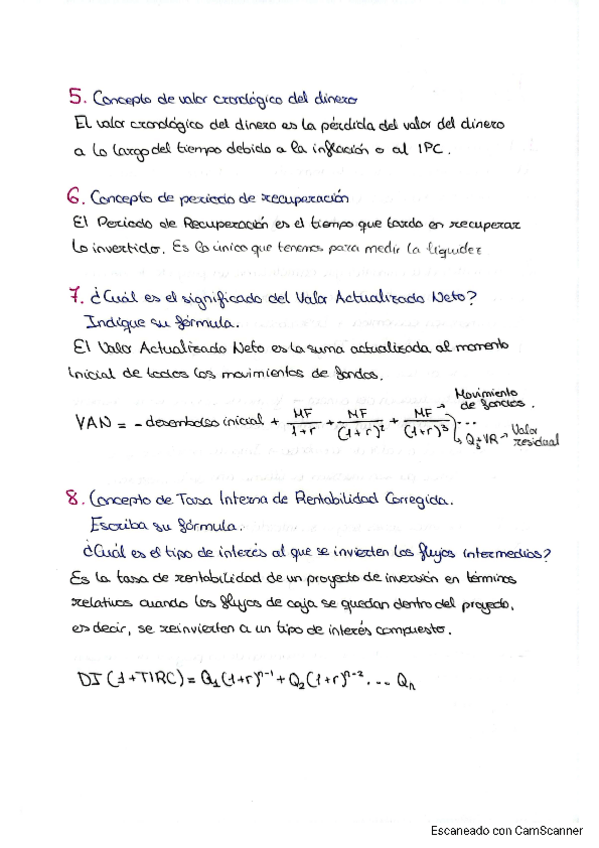 5. Concepto de valor cronológico del dinero
El valor cronológico del dinero es la pérdida del valor del dinero
a lo largo del tiempo debido a la inflación o al IPC.
6. Concepto de periodo de recuperación
El Periodo de Recuperación es el tiempo que tardo en recuperar
lo invertido. Es lo único que tenemos para medir la liquidez
7. ¿Cuál es el significado del Valor Actualizado Neto?
Indique su fórmula.
El Valor Actualizado Neto es la suma actualizada al momento
inicial de todos los movimientos de fondos.
VAN = - desembolso inicial + MF/1+r + MF/(1+r)² + MF/(1+r)³ ...
→ Movimiento
de fondos.
↳ Q₃+VR → Valor
residual
8. Concepto de Tasa Interna de Rentabilidad Corregida.
Escriba su fórmula.
¿Cuál es el tipo de interés al que se invierten los flujos intermedios?
Es la tasa de rentabilidad de un proyecto de inversión en términos
relativos cuando los flujos de caja se quedan dentro del proyecto,
es decir, se reinvierten a un tipo de interés compuesto.
DI (1+TIRC) = Q₁(1+r)ⁿ⁻¹ + Q₂(1+r)ⁿ⁻² ... Qₙ
Escaneado con CamScanner